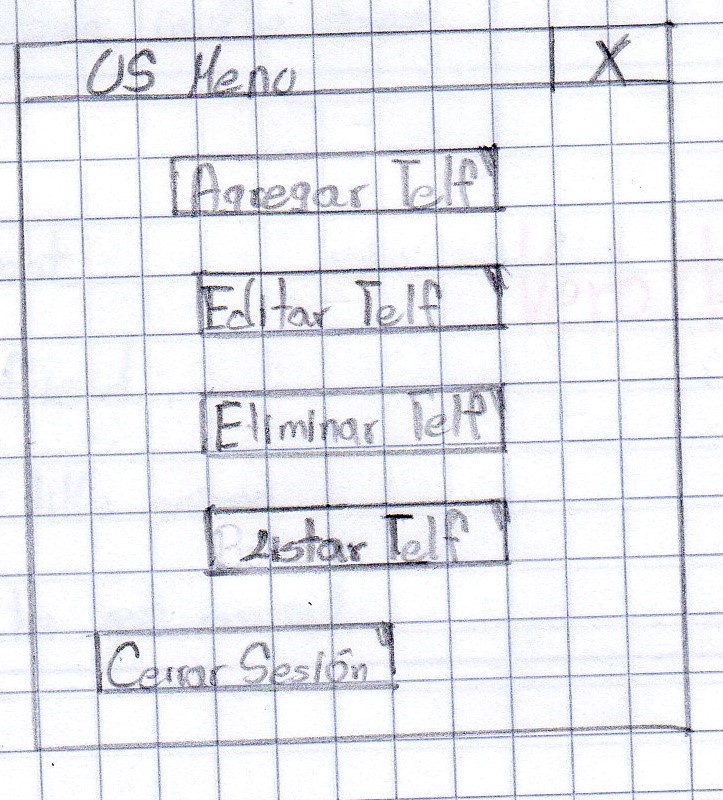 US Menu X
Agregar Telf
Editar Telf
Eliminar Telf
Listar Telf
Cerrar Sesión